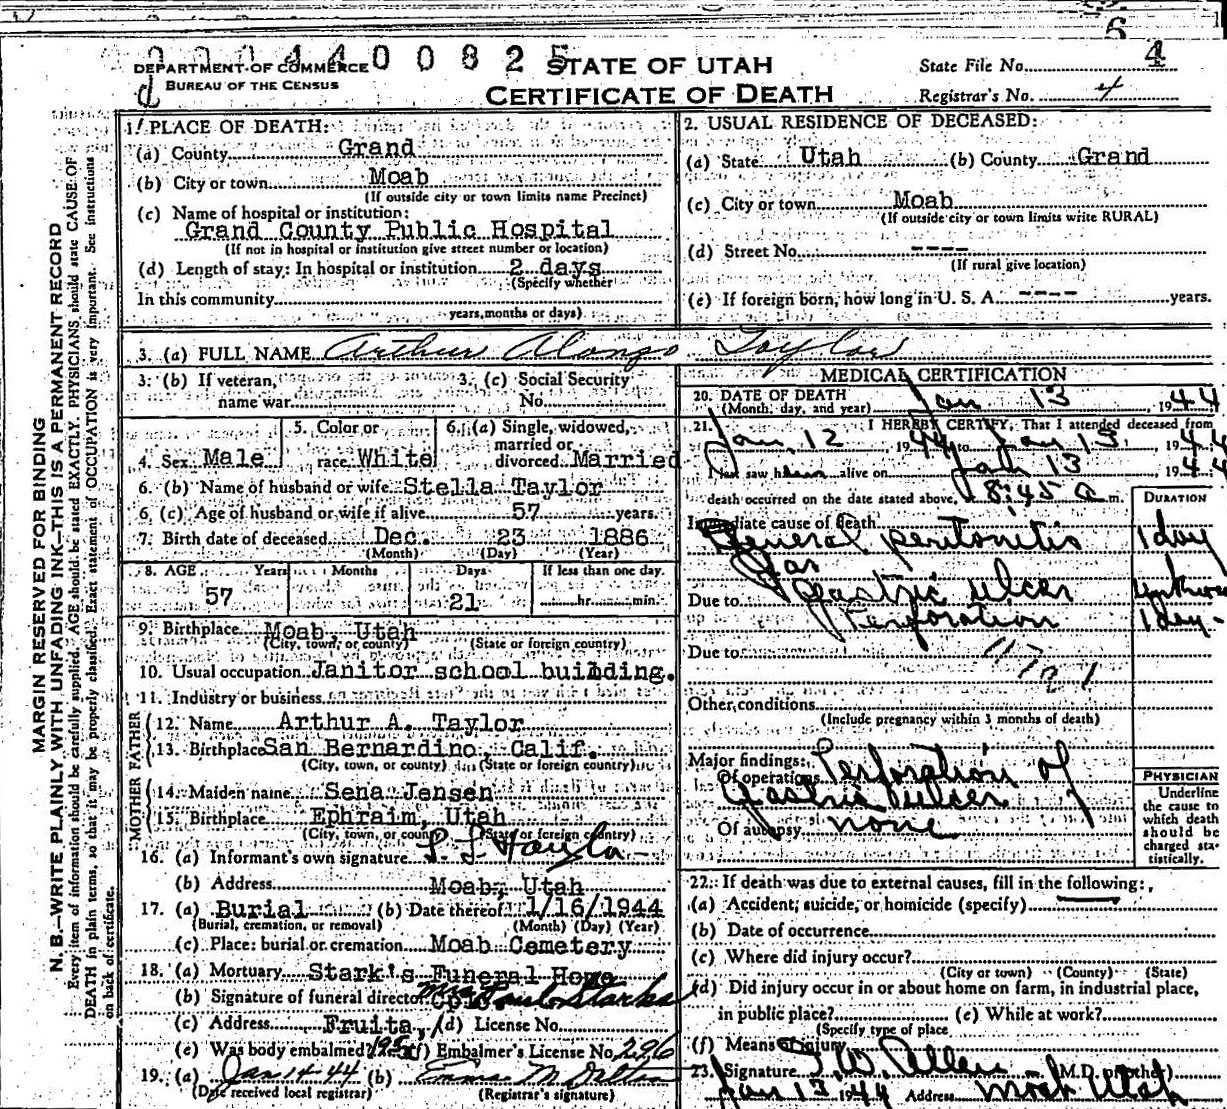 0004400825
DEPARTMENT OF COMMERCE
BUREAU OF THE CENSUS
STATE OF UTAH
CERTIFICATE OF DEATH
State File No. 4
Registrar's No. 4
MARGIN RESERVED FOR BINDING
N. B.—WRITE PLAINLY WITH UNFADING INK—THIS IS A PERMANENT RECORD
Every item of information should be carefully supplied. AGE should be stated EXACTLY. PHYSICIANS should state CAUSE OF
DEATH in plain terms, so that it may be properly classified. Exact statement of OCCUPATION is very important. See instructions
on back of certificate.
1. PLACE OF DEATH:
(a) County Grand
(b) City or town Moab
(If outside city or town limits name Precinct)
(c) Name of hospital or institution:
Grand County Public Hospital
(If not in hospital or institution give street number or location)
(d) Length of stay: In hospital or institution 2 days
(Specify whether
In this community
years, months or days)
2. USUAL RESIDENCE OF DECEASED:
(a) State Utah (b) County Grand
(c) City or town Moab
(If outside city or town limits write RURAL)
(d) Street No. ----
(If rural give location)
(e) If foreign born, how long in U. S. A. ---- years.
3. (a) FULL NAME Arthur Alonzo Taylor
3. (b) If veteran, name war
3. (c) Social Security No.
4. Sex Male
5. Color or race White
6. (a) Single, widowed, married or divorced Married
6. (b) Name of husband or wife Stella Taylor
6. (c) Age of husband or wife if alive 57 years.
7. Birth date of deceased Dec. 23 1886
(Month) (Day) (Year)
8. AGE Years Months Days If less than one day.
57 21 hr. min.
9. Birthplace Moab, Utah
(City, town, or county) (State or foreign country)
10. Usual occupation Janitor school building.
11. Industry or business
FATHER
12. Name Arthur A. Taylor
13. Birthplace San Bernardino, Calif.
(City, town, or county) (State or foreign country)
MOTHER
14. Maiden name Sena Jensen
15. Birthplace Ephraim, Utah
(City, town, or county) (State or foreign country)
16. (a) Informant's own signature
(b) Address Moab, Utah
17. (a) Burial (b) Date thereof 1/16/1944
(Burial, cremation, or removal) (Month) (Day) (Year)
(c) Place: burial or cremation Moab Cemetery
18. (a) Mortuary Stark's Funeral Home
(b) Signature of funeral director
(c) Address Fruita, (d) License No.
(e) Was body embalmed? (f) Embalmer's License No. 296
19. (a) Jan 14-44 (b) Emma M Dalton
(Date received local registrar) (Registrar's signature)
MEDICAL CERTIFICATION
20. DATE OF DEATH
(Month, day, and year) Jan 13, 1944
21. I HEREBY CERTIFY, That I attended deceased from
Jan. 12, 1944 to Jan 13, 1944
I last saw him alive on Jan 13, 1944
death occurred on the date stated above, 8:45 a m.
DURATION
Immediate cause of death
General peritonitis 1 day
Due to Gastric ulcer
Perforation 1 day
Due to
Other conditions
(Include pregnancy within 3 months of death)
Major findings:
Of operations Perforation of
gastric ulcer
Of autopsy none
PHYSICIAN
Underline
the cause to
which death
should be
charged sta-
tistically.
22. If death was due to external causes, fill in the following:
(a) Accident, suicide, or homicide (specify)
(b) Date of occurrence
(c) Where did injury occur?
(City or town) (County) (State)
(d) Did injury occur in or about home on farm, in industrial place,
in public place? (e) While at work?
(Specify type of place
(f) Means of injury
23. Signature I. W. Allen (M.D. or other)
Jan 13 1944 Address Moab Utah